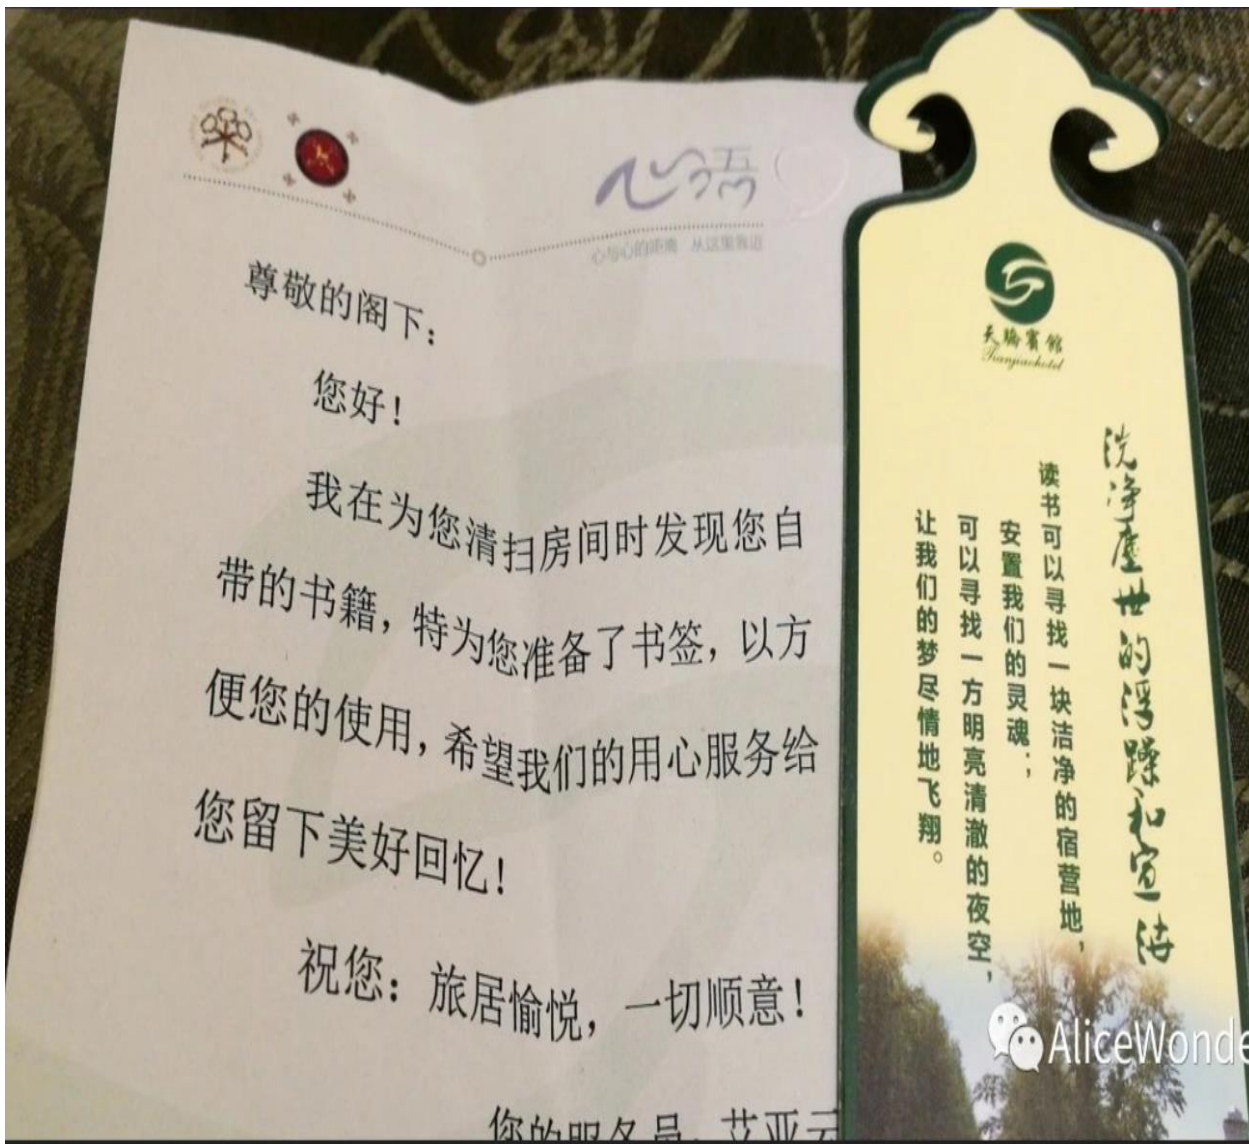 心语
心与心的距离 从这里靠近
尊敬的阁下：
您好！
我在为您清扫房间时发现您自
带的书籍，特为您准备了书签，以方
便您的使用，希望我们的用心服务给
您留下美好回忆！
祝您：旅居愉悦，一切顺意！
您的服务员：艾亚云
天骄賓館
Tianjiaohotel
洗净塵世的浮躁和宣泄
读书可以寻找一块洁净的宿营地，
安置我们的灵魂；
可以寻找一方明亮清澈的夜空，
让我们的梦尽情地飞翔。
AliceWonde